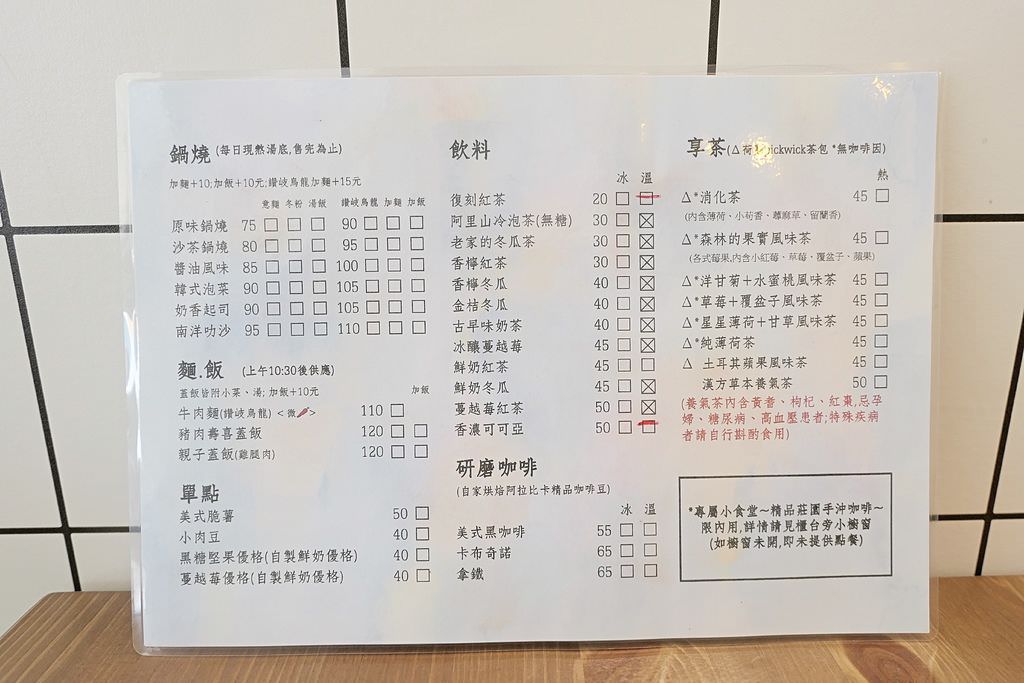 鍋燒(每日現熬湯底,售完為止)
加麵+10;加飯+10元;讚岐烏龍加麵+15元
意麵 冬粉 湯飯 讚岐烏龍 加麵 加飯
原味鍋燒 75 □ □ □ 90 □ □ □
沙茶鍋燒 80 □ □ □ 95 □ □ □
醬油風味 85 □ □ □ 100 □ □ □
韓式泡菜 90 □ □ □ 105 □ □ □
奶香起司 90 □ □ □ 105 □ □ □
南洋叻沙 95 □ □ □ 110 □ □ □
麵.飯 (上午10:30後供應)
蓋飯皆附小菜、湯; 加飯+10元
加飯
牛肉麵(讚岐烏龍) <微🌶> 110 □
豬肉壽喜蓋飯 120 □ □
親子蓋飯(雞腿肉) 120 □ □
單點
美式脆薯 50 □
小肉豆 40 □
黑糖堅果優格(自製鮮奶優格) 40 □
蔓越莓優格(自製鮮奶優格) 40 □
飲料
冰 溫
復刻紅茶 20 □ □
阿里山冷泡茶(無糖) 30 □ ☒
老家的冬瓜茶 30 □ ☒
香檸紅茶 30 □ ☒
香檸冬瓜 40 □ ☒
金桔冬瓜 40 □ ☒
古早味奶茶 40 □ ☒
冰釀蔓越莓 45 □ ☒
鮮奶紅茶 45 □ □
鮮奶冬瓜 45 □ ☒
蔓越莓紅茶 50 □ ☒
香濃可可亞 50 □ □
研磨咖啡
(自家烘焙阿拉比卡精品咖啡豆)
冰 溫
美式黑咖啡 55 □ □
卡布奇諾 65 □ □
拿鐵 65 □ □
享茶(△荷 ickwick茶包 *無咖啡因)
熱
△*消化茶 45 □
(內含薄荷、小茴香、蕁麻草、留蘭香)
△*森林的果實風味茶 45 □
(各式莓果,內含小紅莓、草莓、覆盆子、蘋果)
△*洋甘菊+水蜜桃風味茶 45 □
△*草莓+覆盆子風味茶 45 □
△*星星薄荷+甘草風味茶 45 □
△*純薄荷茶 45 □
△ 土耳其蘋果風味茶 45 □
漢方草本養氣茶 50 □
(養氣茶內含黃耆、枸杞、紅棗,忌孕
婦、糖尿病、高血壓患者;特殊疾病
者請自行斟酌食用)
*專屬小食堂～精品莊園手沖咖啡～
限內用,詳情請見櫃台旁小櫥窗
(如櫥窗未開,即未提供點餐)